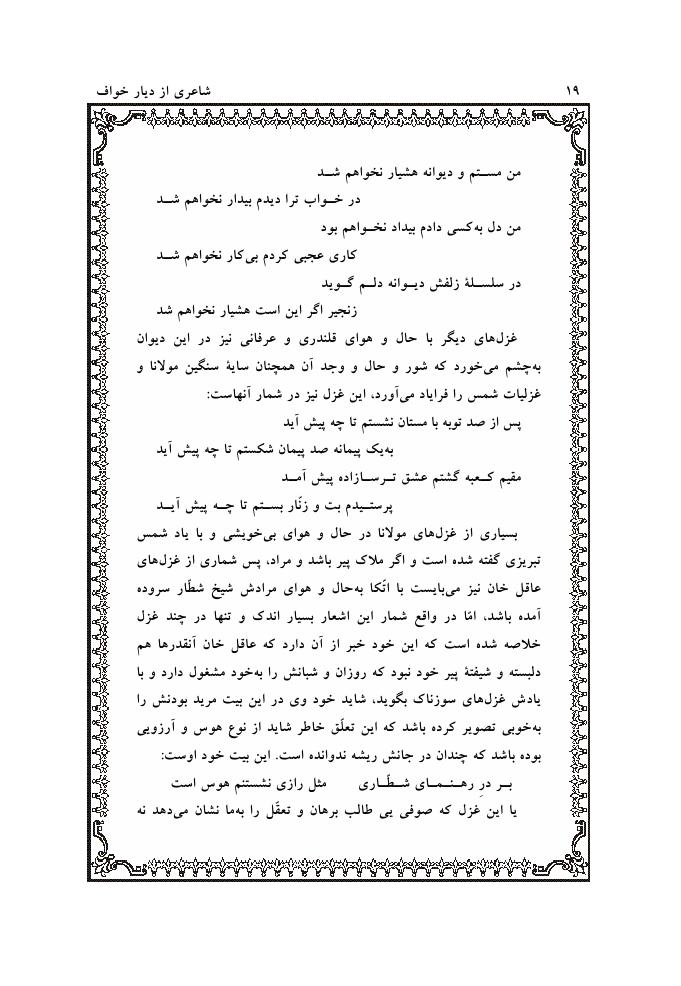 ۱۹ شاعری از دیار خواف
من مستم و دیوانه هشیار نخواهم شد
در خواب ترا دیدم بیدار نخواهم شد
من دل به‌کسی دادم بیداد نخواهم بود
کاری عجبی کردم بی‌کار نخواهم شد
در سلسلهٔ زلفش دیوانه دلم گوید
زنجیر اگر این است هشیار نخواهم شد
غزل‌های دیگر با حال و هوای قلندری و عرفانی نیز در این دیوان
به‌چشم می‌خورد که شور و حال و وجد آن همچنان سایهٔ سنگین مولانا و
غزلیات شمس را فرایاد می‌آورد، این غزل نیز در شمار آنهاست:
پس از صد توبه با مستان نشستم تا چه پیش آید
به‌یک پیمانه صد پیمان شکستم تا چه پیش آید
مقیم کعبه گشتم عشق ترسازاده پیش آمد
پرستیدم بت و زنّار بستم تا چه پیش آید
بسیاری از غزل‌های مولانا در حال و هوای بی‌خویشی و با یاد شمس
تبریزی گفته شده است و اگر ملاک پیر باشد و مراد، پس شماری از غزل‌های
عاقل خان نیز می‌بایست با اتّکا به‌حال و هوای مرادش شیخ شطّار سروده
آمده باشد، امّا در واقع شمار این اشعار بسیار اندک و تنها در چند غزل
خلاصه شده است که این خود خبر از آن دارد که عاقل خان آنقدرها هم
دلبسته و شیفتهٔ پیر خود نبود که روزان و شبانش را به‌خود مشغول دارد و با
یادش غزل‌های سوزناک بگوید، شاید خود وی در این بیت مرید بودنش را
به‌خوبی تصویر کرده باشد که این تعلّق خاطر شاید از نوع هوس و آرزویی
بوده باشد که چندان در جانش ریشه ندوانده است. این بیت خود اوست:
بر درِ رهنمای شطّاری مثل رازی نشستنم هوس است
یا این غزل که صوفی یی طالب برهان و تعقّل را به‌ما نشان می‌دهد نه